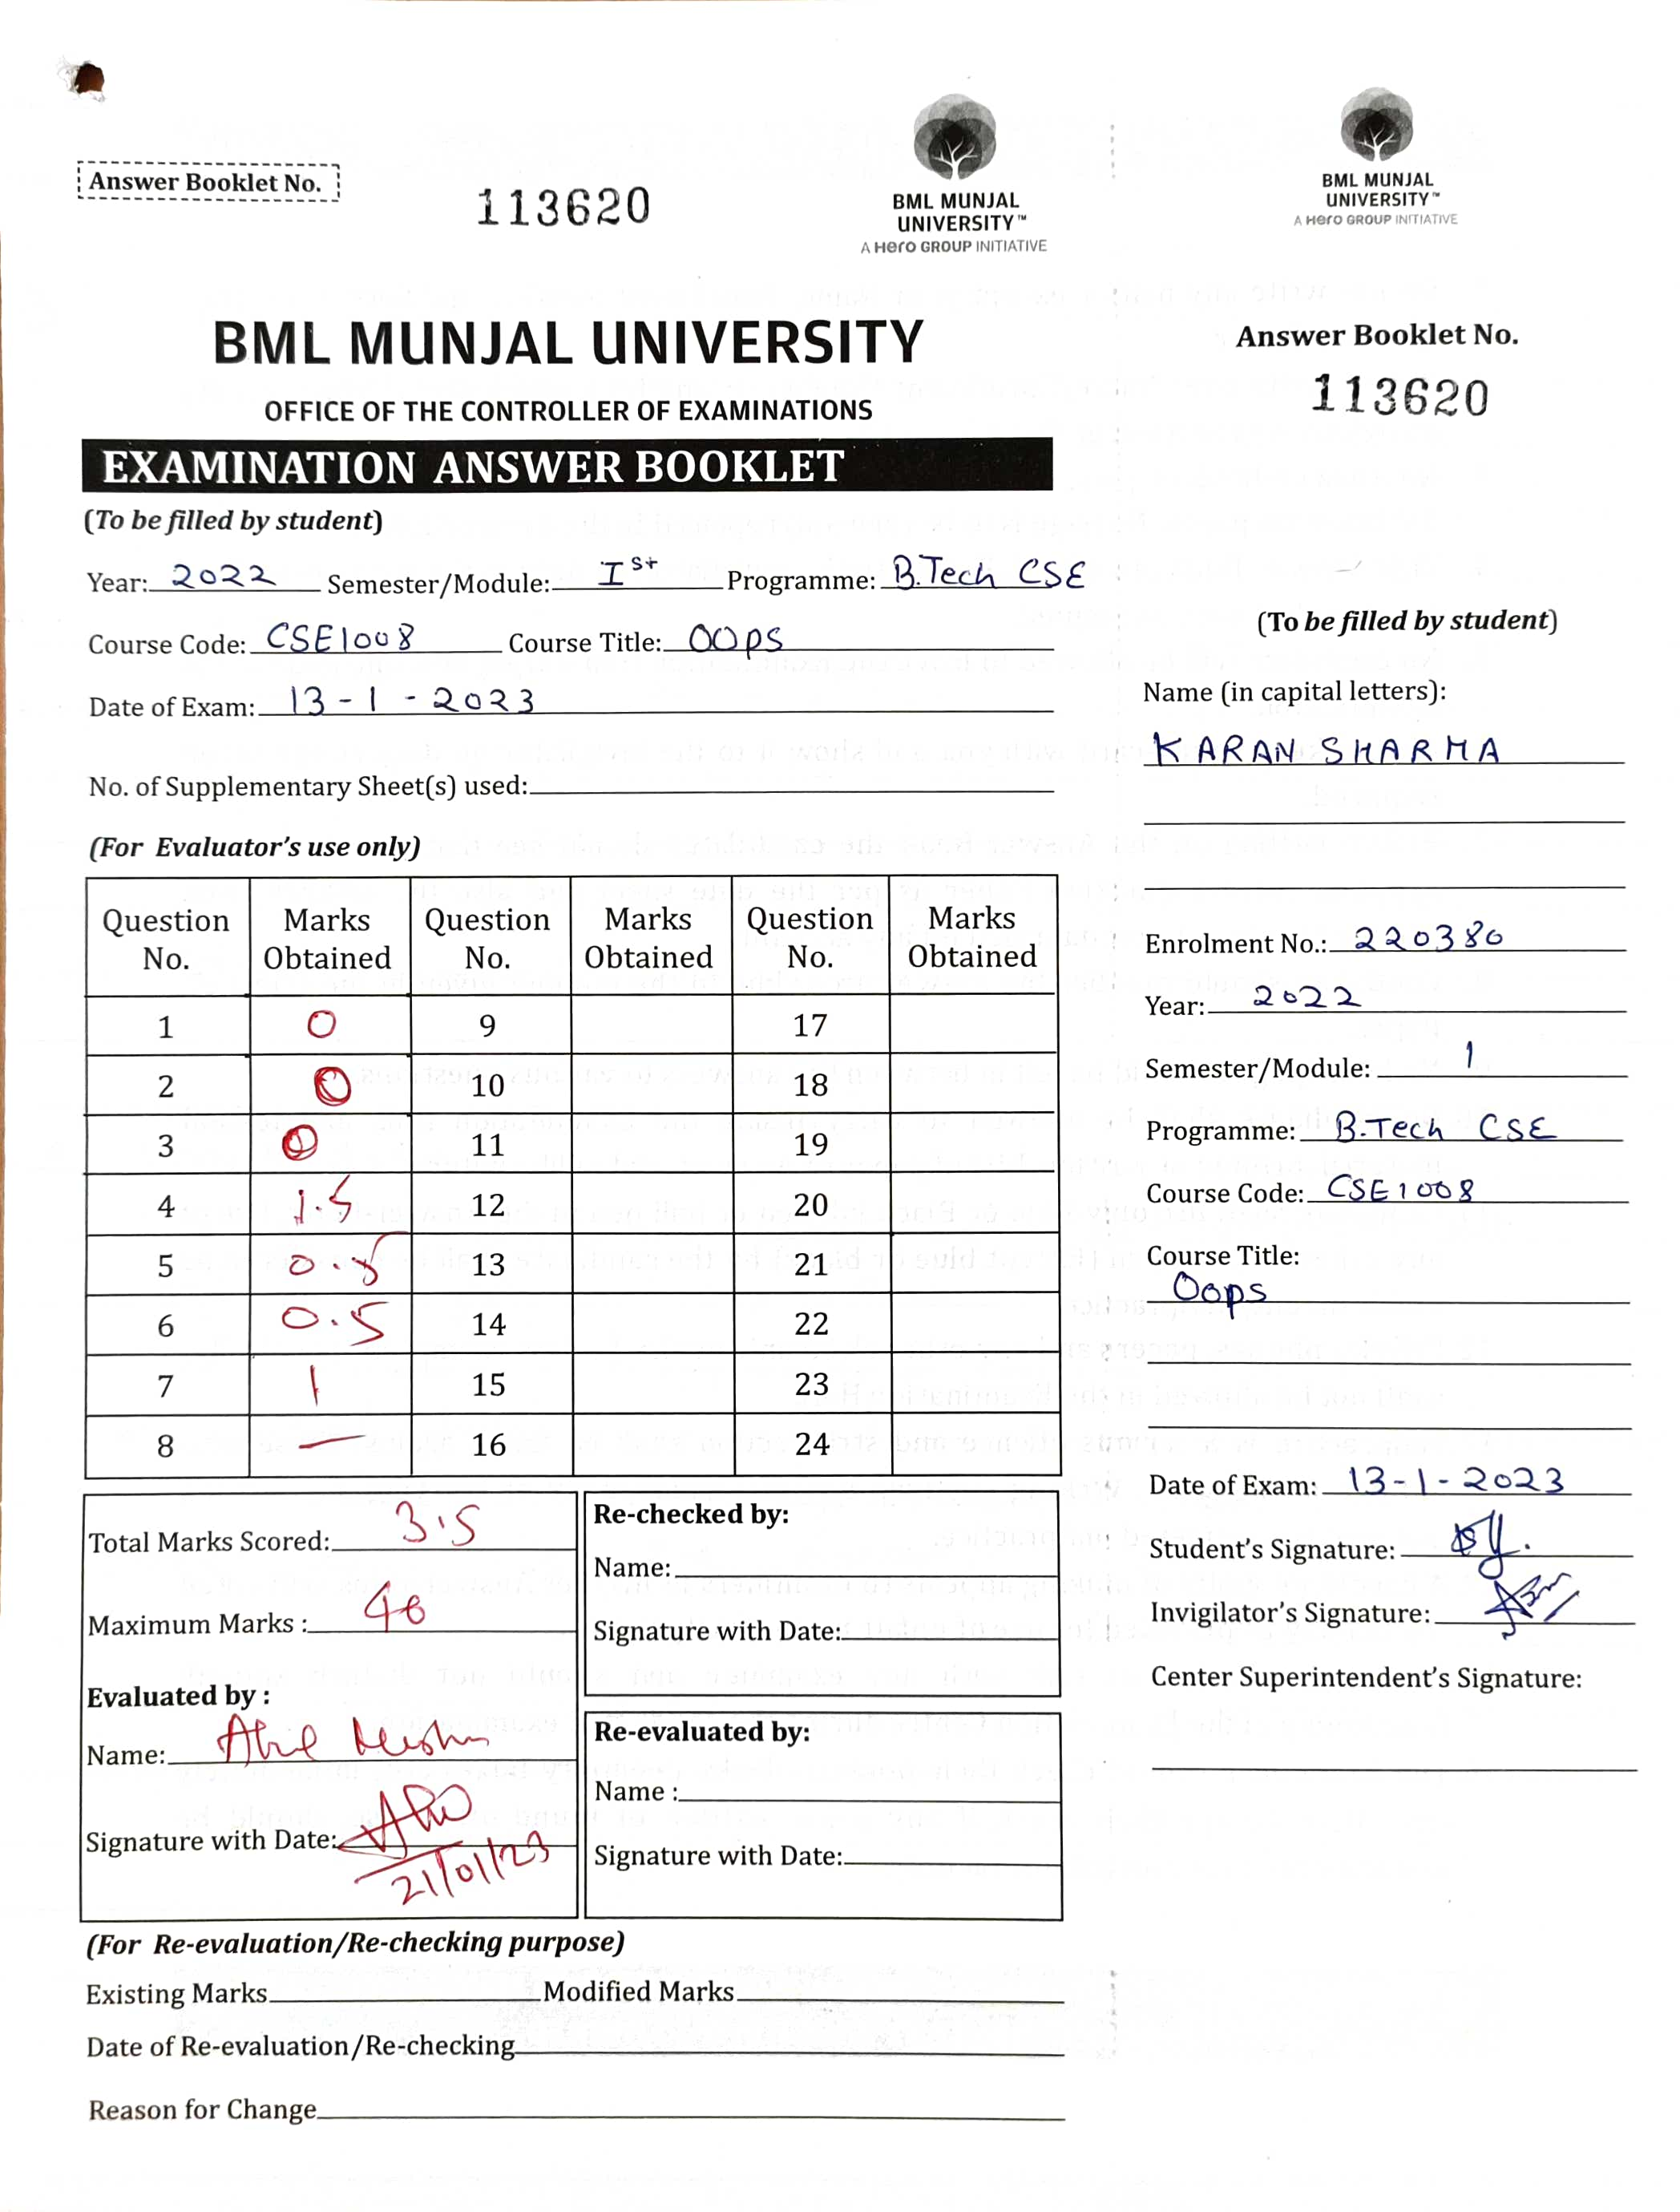 Answer Booklet No.
113620
BML MUNJAL
UNIVERSITY™
A Hero GROUP INITIATIVE
BML MUNJAL UNIVERSITY
OFFICE OF THE CONTROLLER OF EXAMINATIONS
EXAMINATION ANSWER BOOKLET
(To be filled by student)
Year: 2022 Semester/Module: Ist Programme: B.Tech CSE
Course Code: CSE1008 Course Title: OOPS
Date of Exam: 13-1-2023
No. of Supplementary Sheet(s) used:
(For Evaluator's use only)
Question No. Marks Obtained Question No. Marks Obtained Question No. Marks Obtained
1 0 9 17
2 0 10 18
3 0 11 19
4 1.5 12 20
5 0.5 13 21
6 0.5 14 22
7 1 15 23
8 — 16 24
Total Marks Scored: 3.5
Maximum Marks : 40
Evaluated by :
Name:
Signature with Date: 21/01/23
Re-checked by:
Name:
Signature with Date:
Re-evaluated by:
Name :
Signature with Date:
(For Re-evaluation/Re-checking purpose)
Existing Marks Modified Marks
Date of Re-evaluation/Re-checking
Reason for Change
BML MUNJAL
UNIVERSITY™
A Hero GROUP INITIATIVE
Answer Booklet No.
113620
(To be filled by student)
Name (in capital letters):
KARAN SHARMA
Enrolment No.: 220380
Year: 2022
Semester/Module: 1
Programme: B.Tech CSE
Course Code: CSE1008
Course Title:
Oops
Date of Exam: 13-1-2023
Student's Signature:
Invigilator's Signature:
Center Superintendent's Signature: